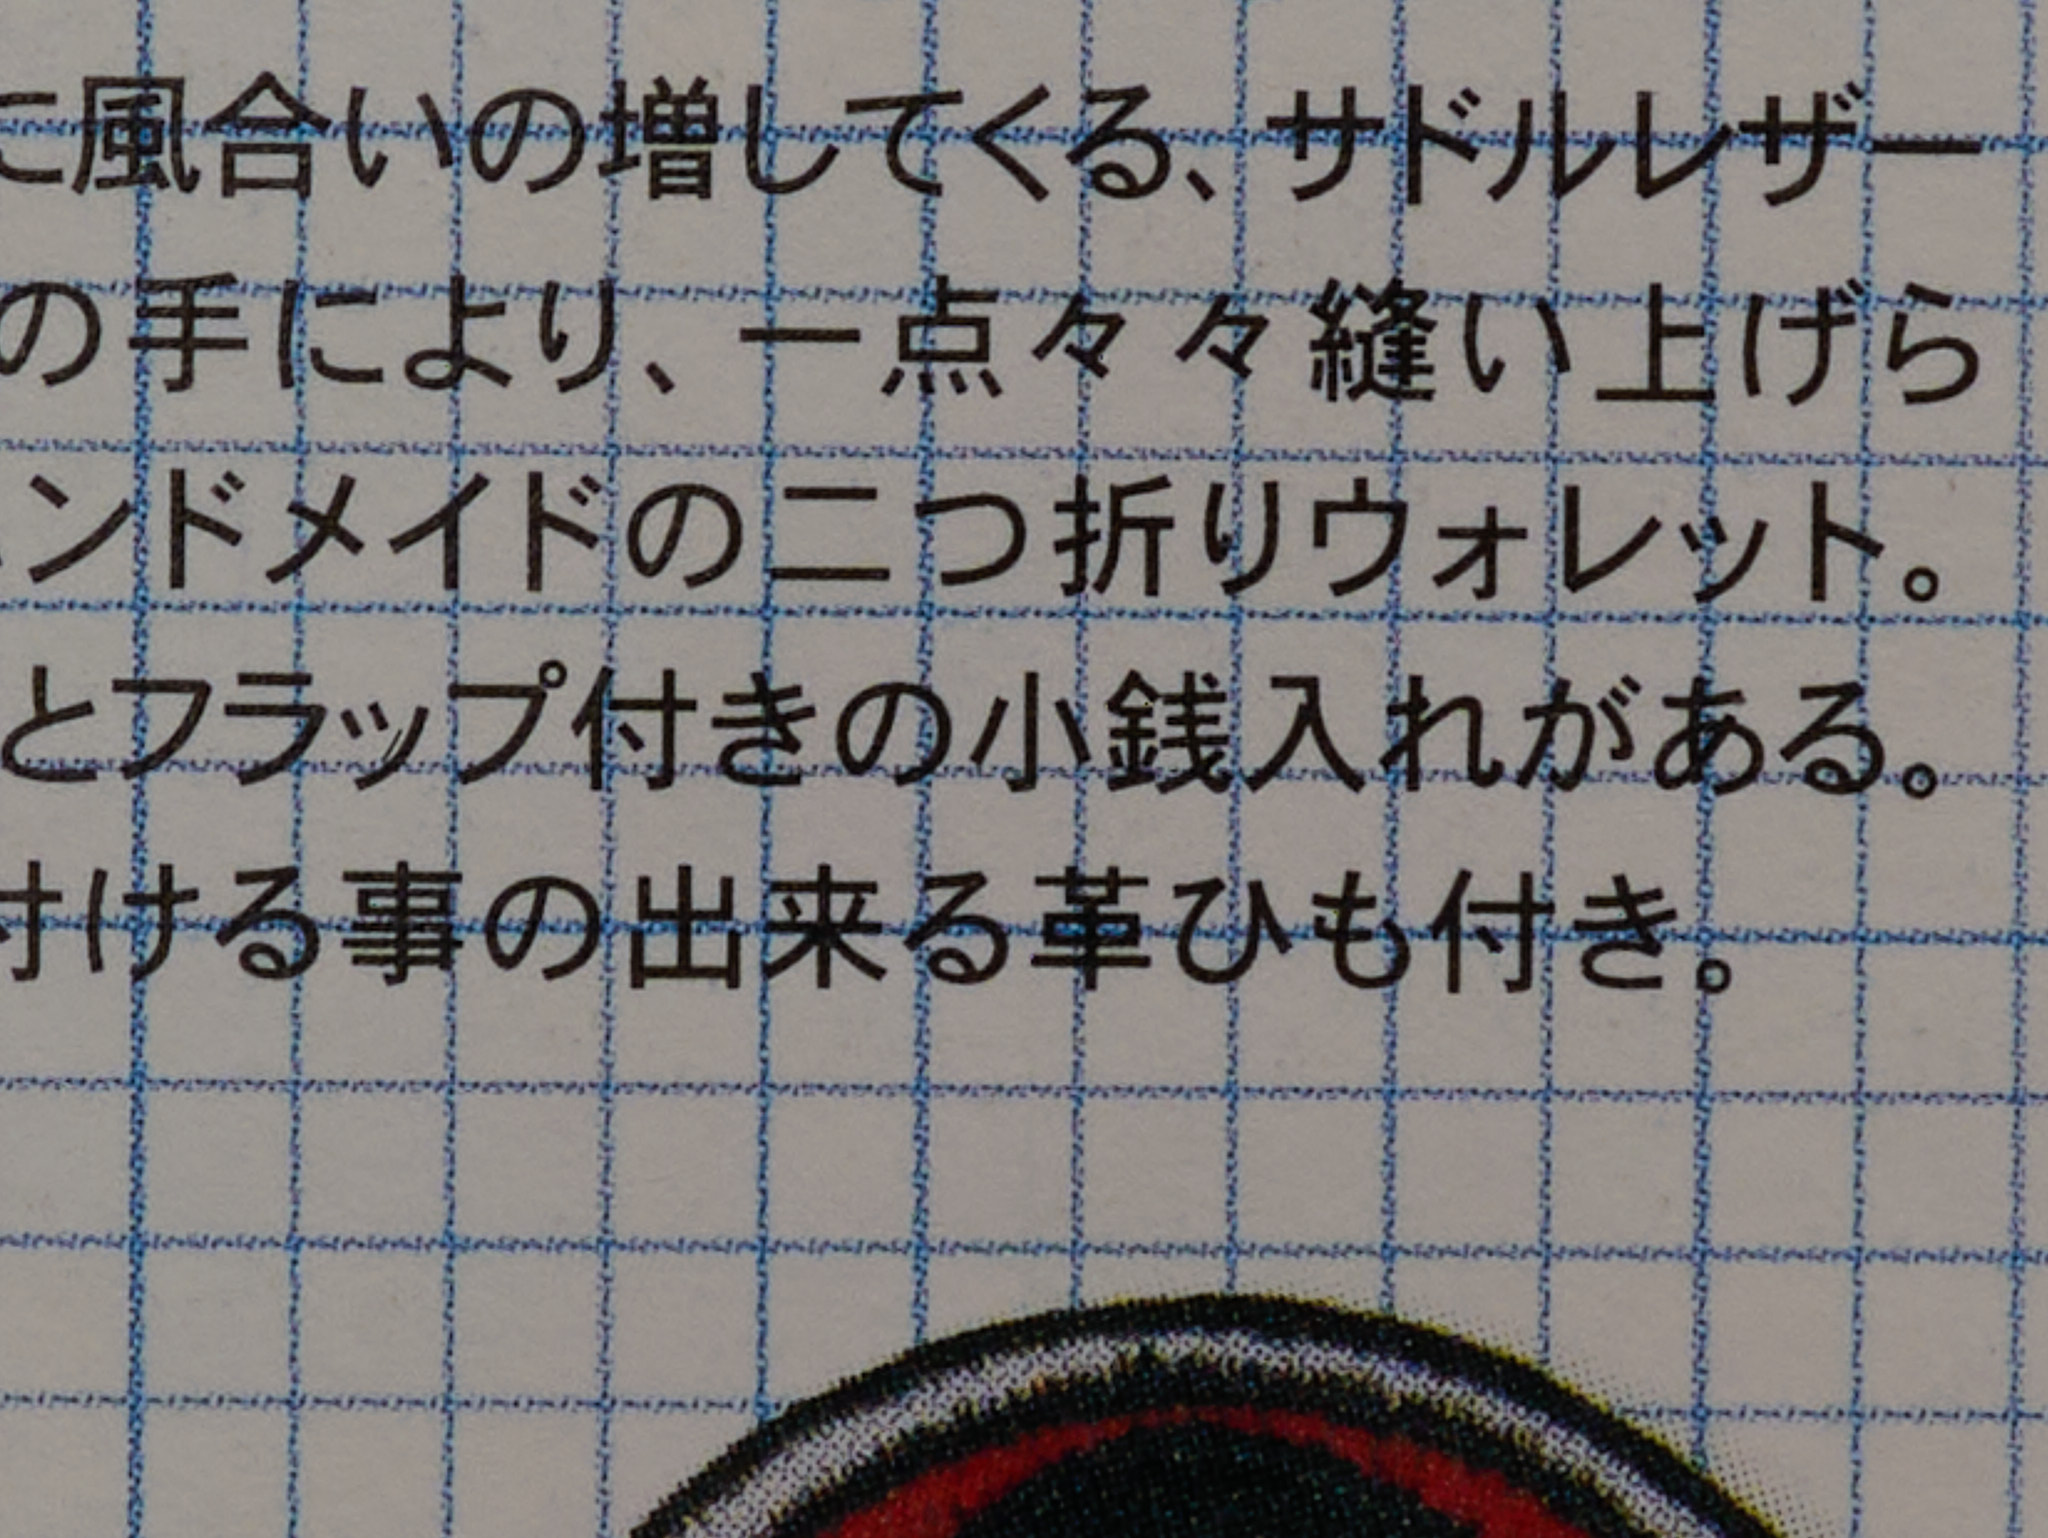 に風合いの増してくる、サドルレザー
の手により、一点々々縫い上げら
ンドメイドの二つ折りウォレット。
とフラップ付きの小銭入れがある。
付ける事の出来る革ひも付き。